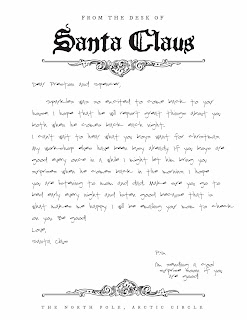 FROM THE DESK OF
Santa Claus
Dear Preston and Spencer
Sparkles was so excited to come back to your
house. I hope that he will report great things about you
both when he comes back each night.
I can't wait to hear what you boys want for christmas.
My workshop elves have been busy already. If you boys are
good every once in a while I might let him bring you
surprises when he comes back in the morning. I hope
you are listening to mom and dad. Make sure you go to
bed early every night and listen good because that is
what makes me happy. I will be emailing your mom to check
on you. Be good!
Love,
Santa Claus
P.S.
I'm sending a cool
surprise home if you
are good
THE NORTH POLE, ARCTIC CIRCLE